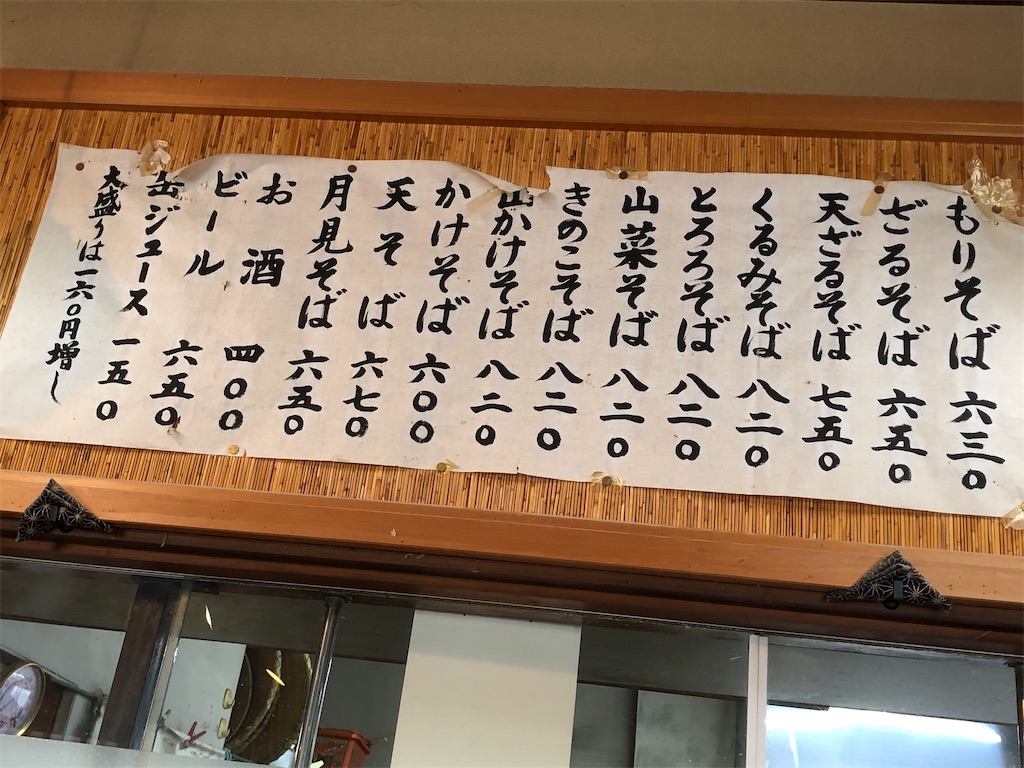 もりそば 六三〇
ざるそば 六五〇
天ざるそば 七五〇
くるみそば 八二〇
とろろそば 八二〇
山菜そば 八二〇
きのこそば 八二〇
山かけそば 八二〇
かけそば 六〇〇
天そば 六七〇
月見そば 六五〇
お酒 四〇〇
ビール 六五〇
缶ジュース 一五〇
大盛りは一六〇円増し